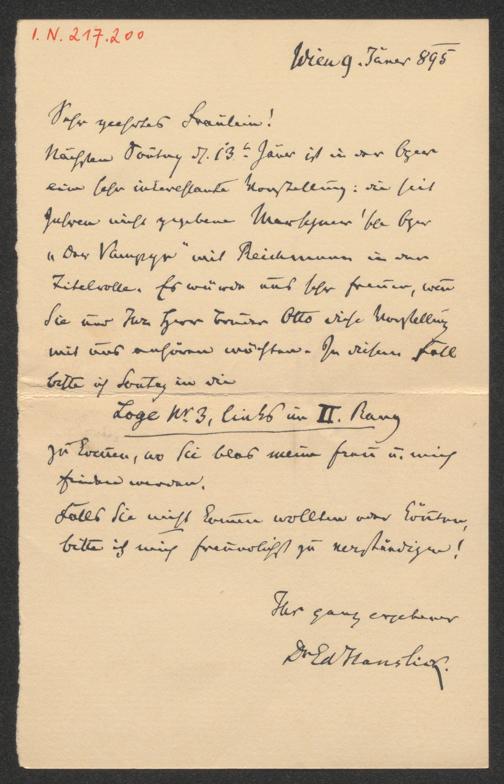 I. N. 217.200
Wien 9. Jäner 895
Sehr geehrtes Fräulein!
Nächsten Sontag d. 13t Jäner ist in der Oper
eine sehr interessante Vorstellung: die seit
Jahren nicht gegebene Marschner'sche Oper
„Der Vampyr" mit Reichmann in der
Titelrolle. Es würde uns sehr freuen, wen̄
Sie und Ihr Herr Bruder Otto diese Vorstellung
mit uns anhören möchten. In diesem Fall
bitte ich Sontag in die
Loge Nr. 3, links im II. Rang
zu kom̄en, wo Sie blos meine Frau u. mich
finden werden.
Falls Sie nicht kom̄en wollten oder kön̄ten,
bitte ich mich freundlichst zu verständigen!
Ihr ganz ergebener
Dr Ed Hanslick.